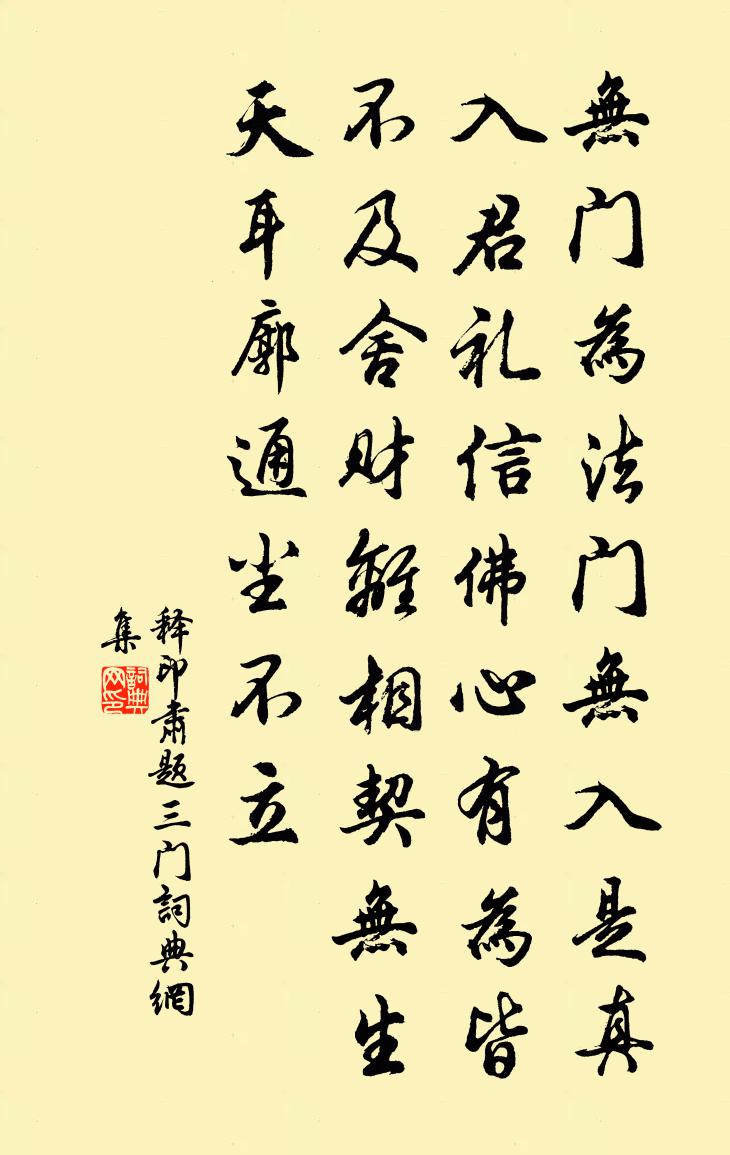 無门為法门無入是真
入君礼信佛心有為皆
不及舍财離相契無生
天耳廓通尘不立
释印肃题三门詞典網
集
詞典网印